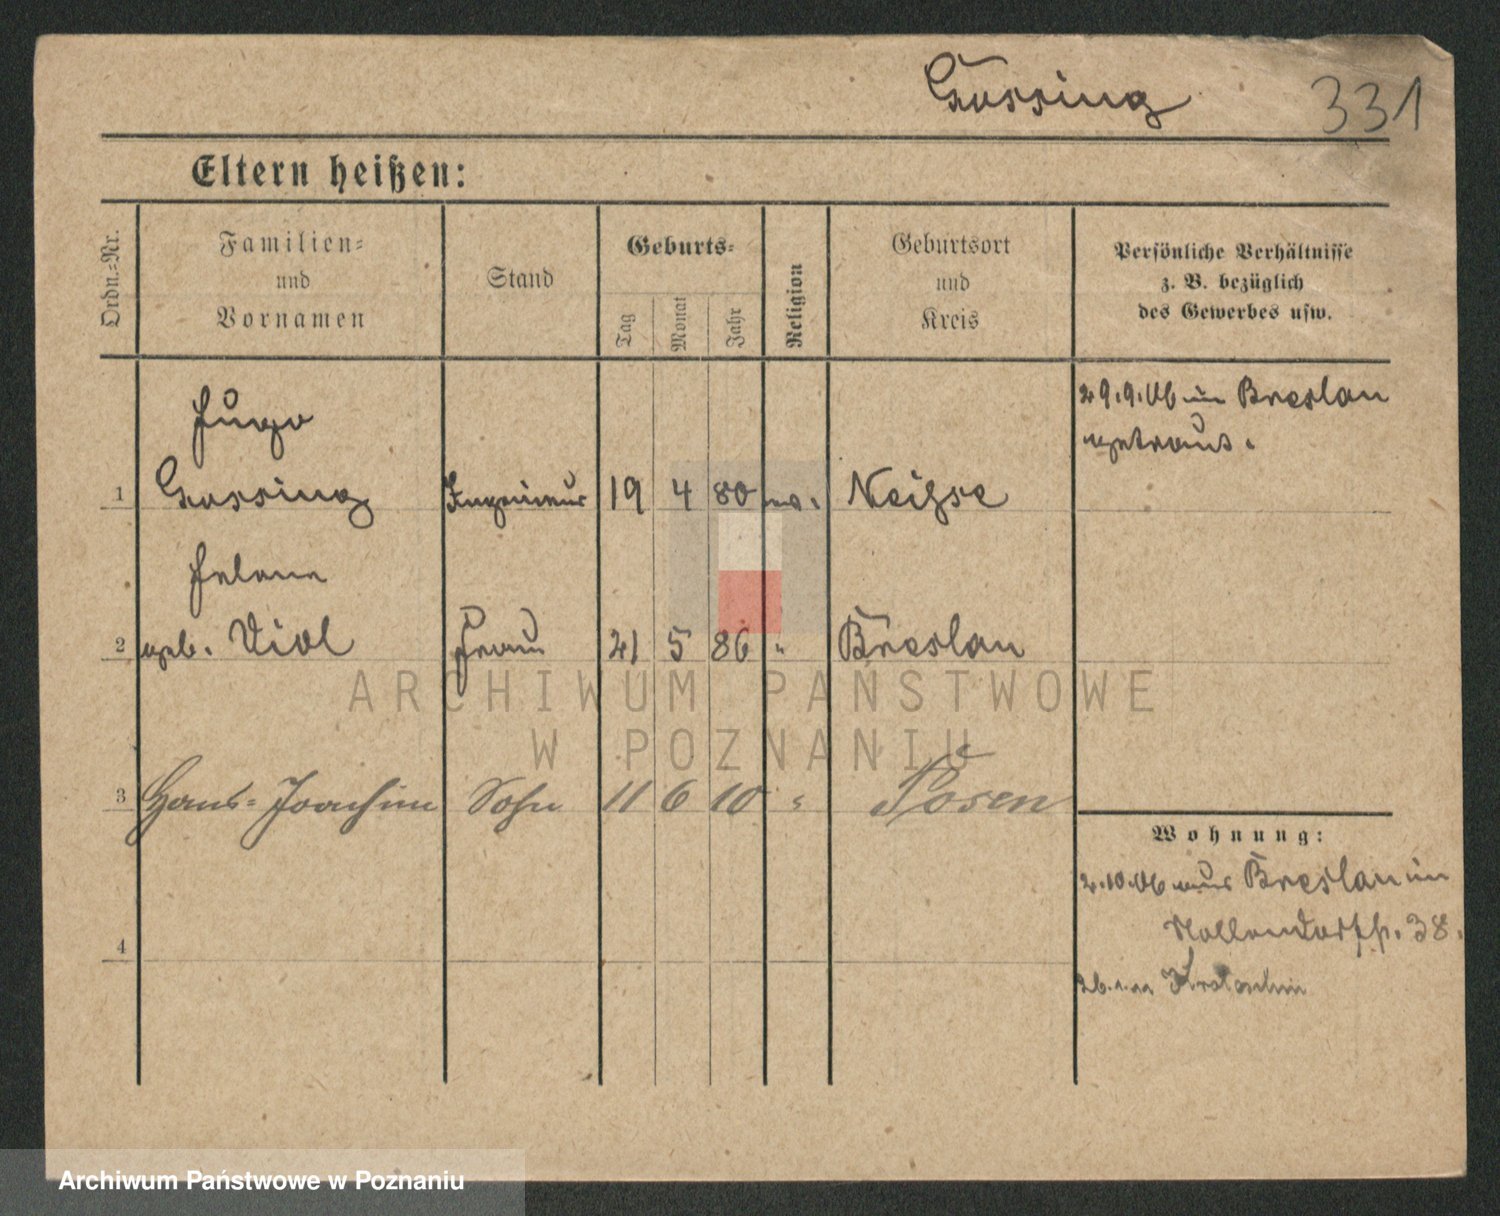 Gossing 331
Eltern heißen:
Ordn.=Nr.
Familien=
und
Vornamen
Stand
Geburts=
Tag
Monat
Jahr
Religion
Geburtsort
und
Kreis
Persönliche Verhältnisse
z. B. bezüglich
des Gewerbes usw.
29.9.06 in Breslau
getraut.
Hugo
1 Gossing Ingenieur 19 4 80 Neisse
Helene
2 geb. Viol Frau 21 5 86 " Breslau
3 Hans-Joachim Sohn 11 6 10 " Posen
4
Wohnung:
2.10.06 aus Breslau in
Nollendorfp. 38.
Krotoschin
ARCHIWUM PAŃSTWOWE
W POZNANIU
Archiwum Państwowe w Poznaniu